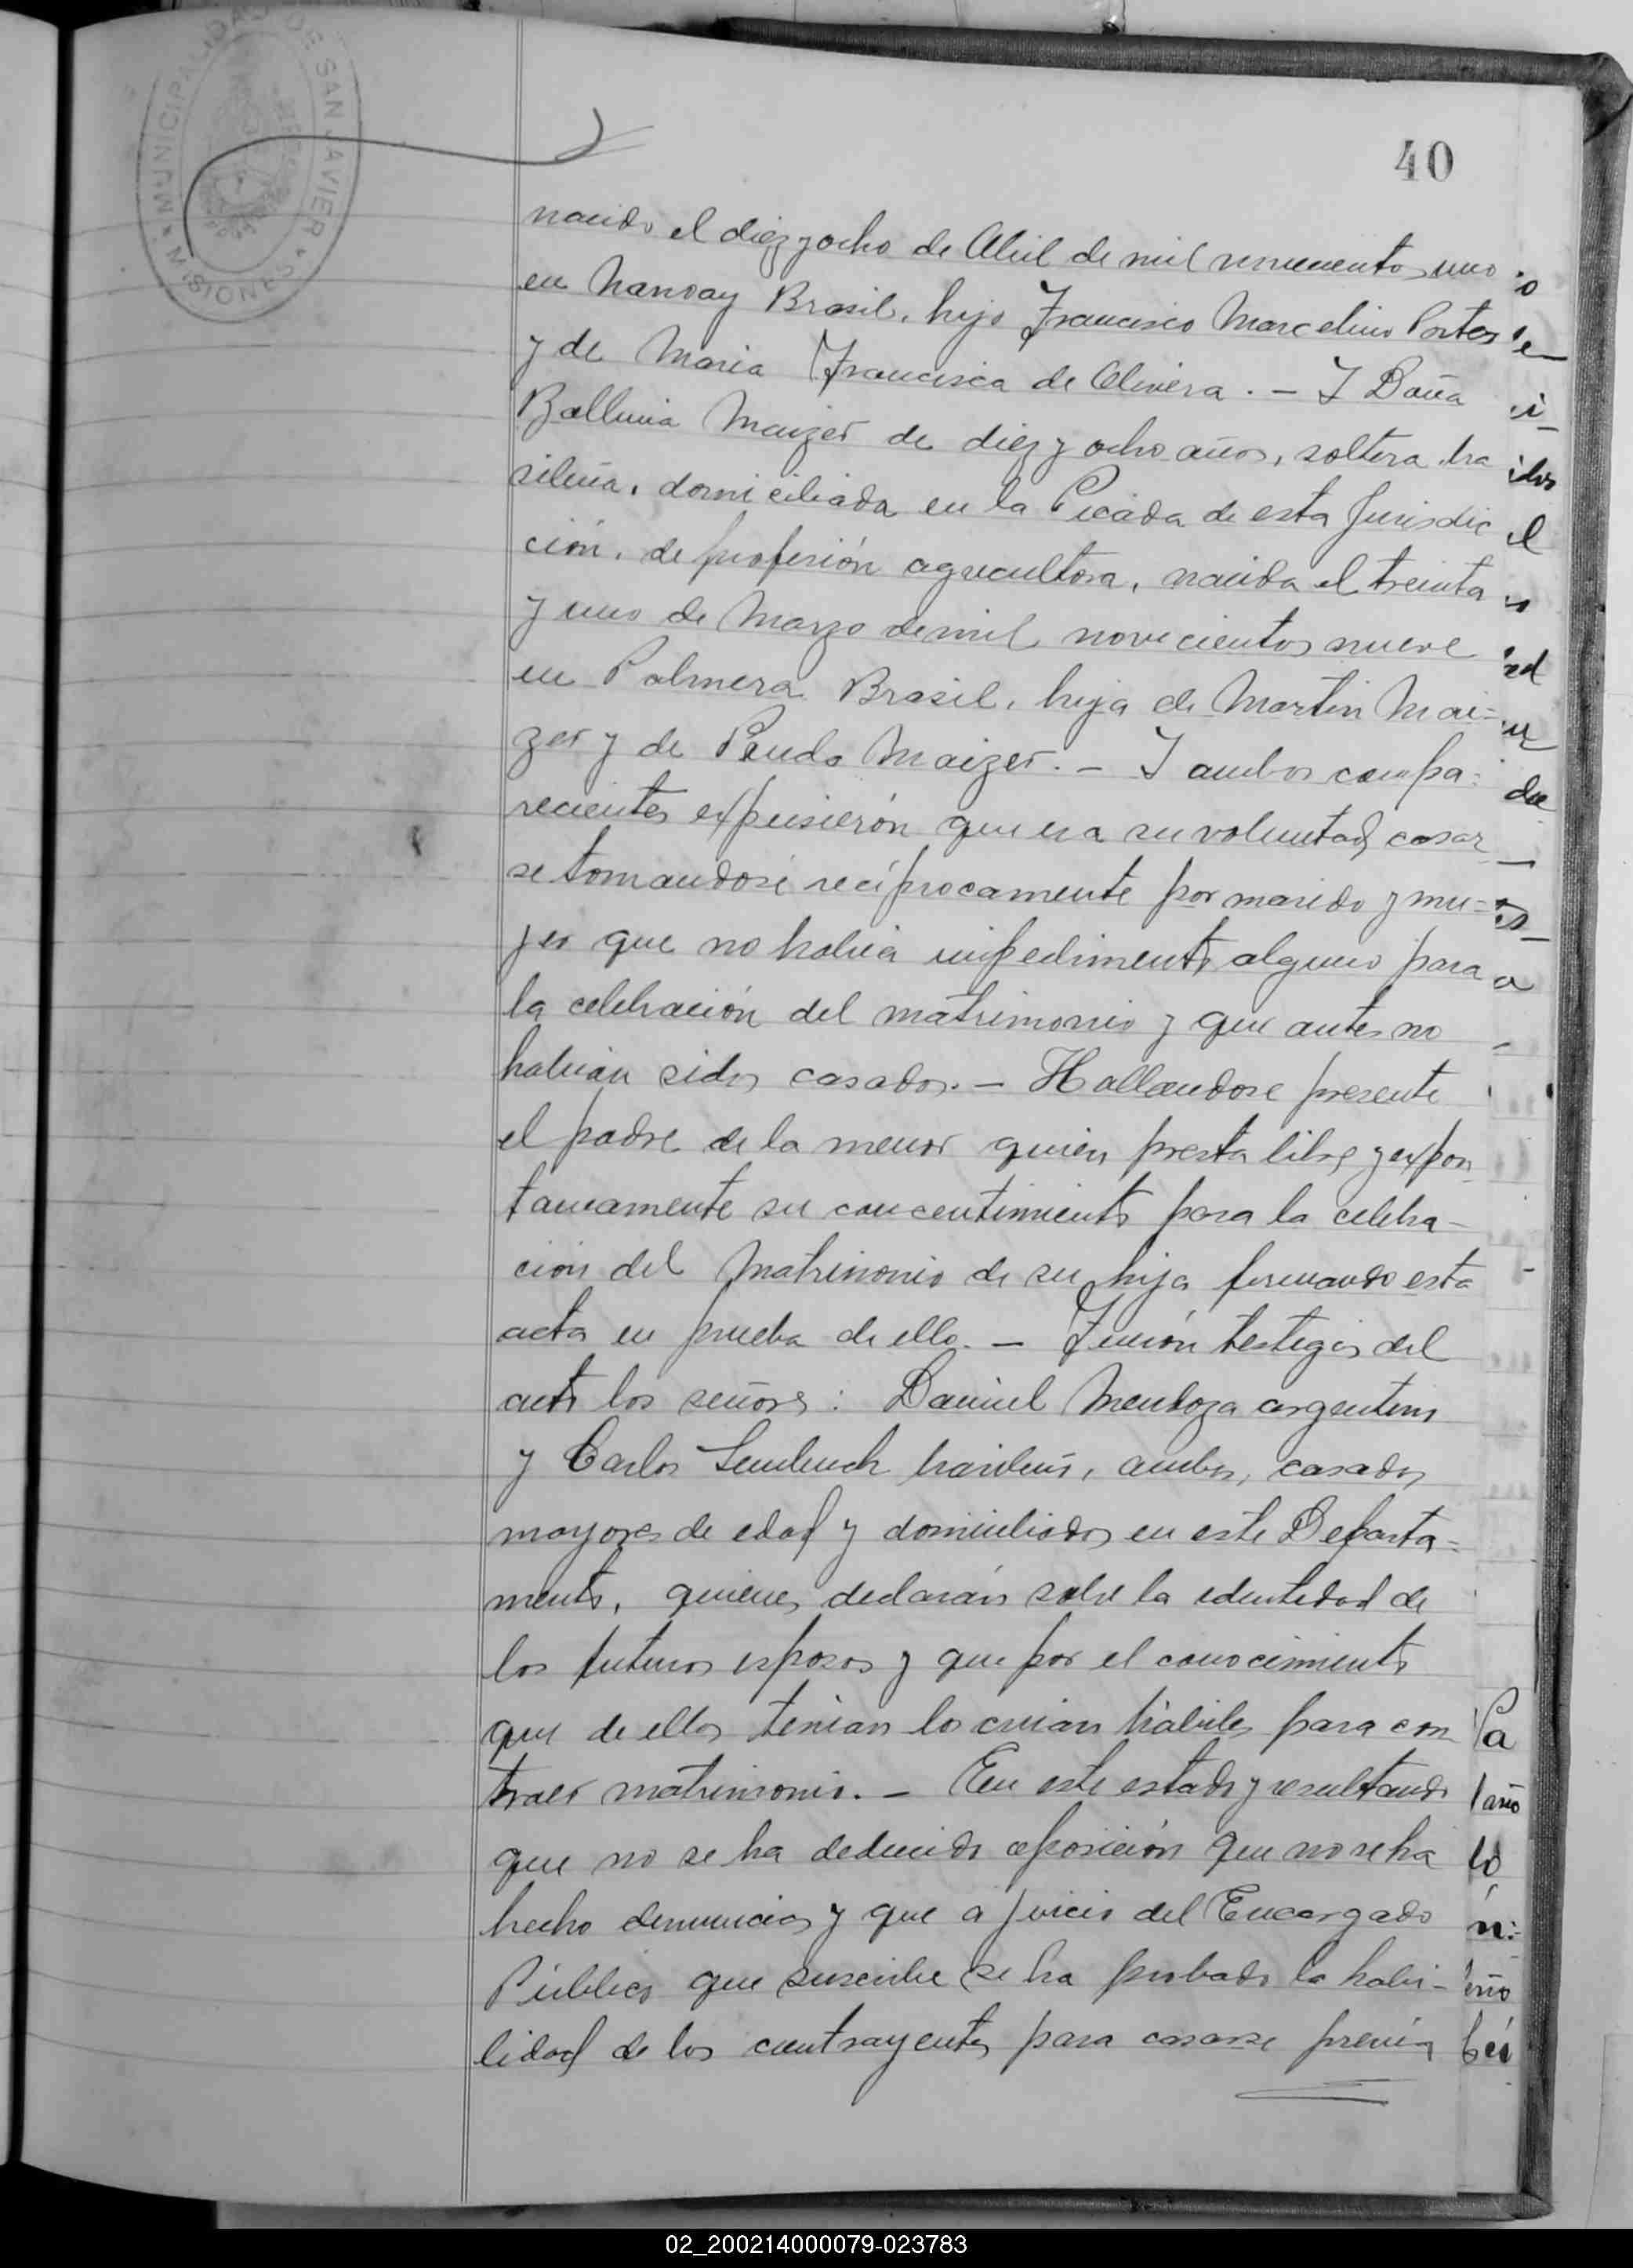 MUNICIPALIDAD DE SAN JAVIER
MISIONES
40
nacido el diez y ocho de Abril de mil novecientos uno
en Nanday Brasil, hijo Francisco Marcelino Portes
y de Maria Francisca de Olivera. — Y Doña
Balbina Maizer de diez y ocho años, soltera, bra
sileña, domiciliada en la Picada de esta Jurisdic
ción, de profesión agricultora, nacida el treinta
y uno de Marzo de mil novecientos nueve
en Palmera Brasil, hija de Martin Mai=
zer y de Maizer. — Y ambos compa=
recientes expusierón que era su voluntad casar
se tomandose recíprocamente por marido y mu=
jer que no habia impedimento alguno para
la celebración del matrimonio y que antes no
habian sidos casados. — Hallandose presente
el padre de la menor quien presta libre y expon
taneamente su concentimiento para la celebra-
ción del Matrimonio de su hija firmando esta
acta en prueba de ello. — Fuerón testigos del
acto los señores: Daniel Mendoza argentino
y Carlos brasileño, ambos, casados
mayores de edad y domiciliados en este Departa=
mento, quienes declarán sobre la identidad de
los futuros esposos y que por el conocimiento
que de ellos tenian los creian hábiles para con
traer matrimonio. — En este estado y resultando
que no se ha deducido oposición que no se ha
hecho denuncias y que a juicio del Encargado
Público que suscribe se ha probado la habi-
lidad de los contrayentes para casarse previa
02_200214000079-023783